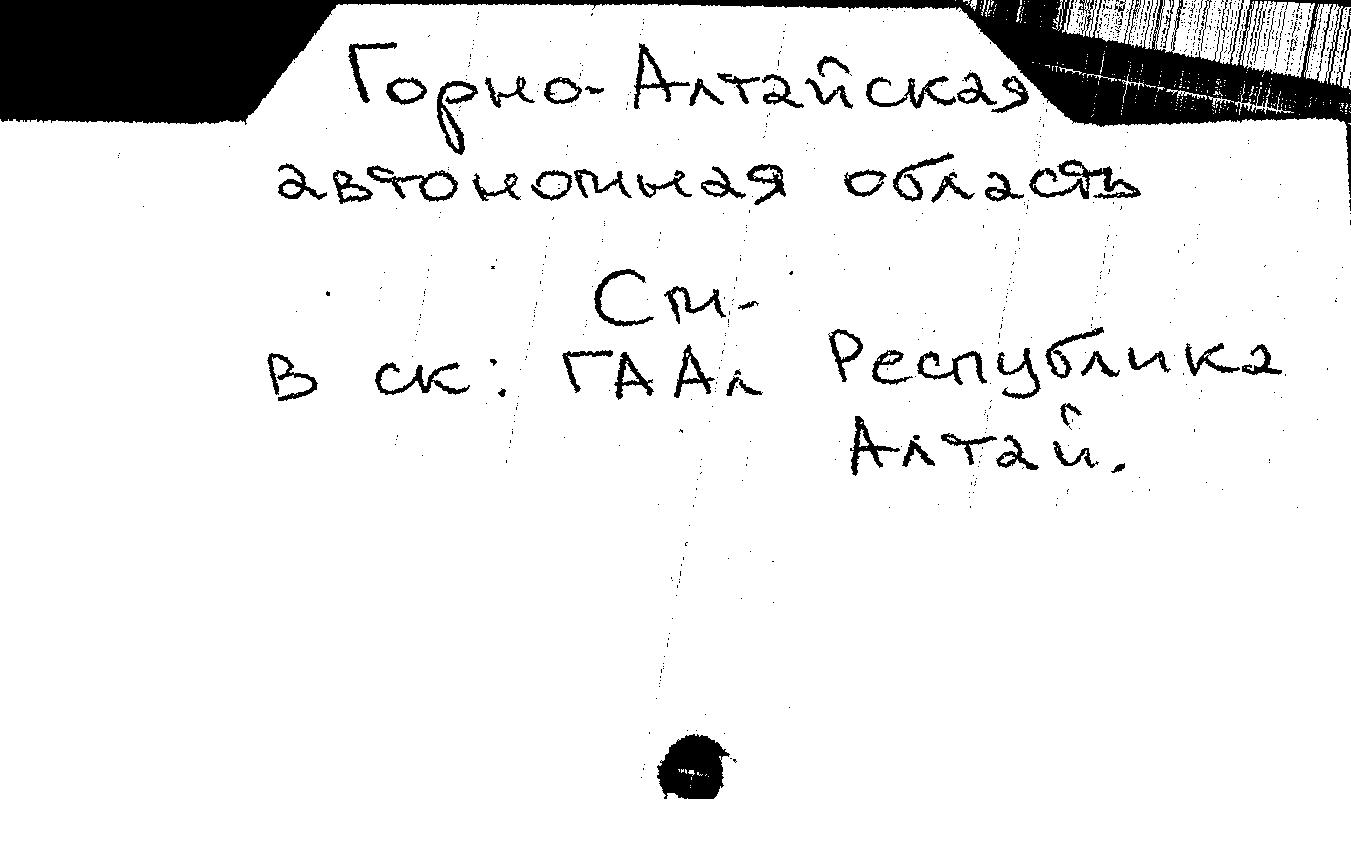 Горно-Алтайская
автономная область
См-
В ск: ГААл Республика
Алтай.